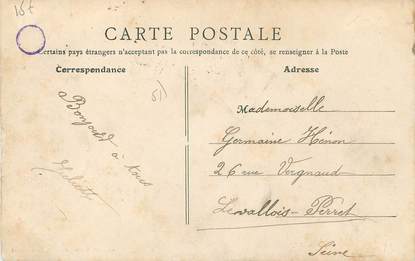 15f
CARTE POSTALE
Certains pays étrangers n'acceptant pas la correspondance de ce côté, se renseigner à la Poste
Correspondance
Adresse
Bonjour
à tous
Juliette
Mademoiselle
Germaine Hénon
26 rue Vergniaud
Levallois-Perret
Seine